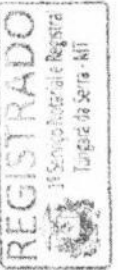 REGISTRADO
1º Serviço Notarial e Registral
Tangará da Serra - MT